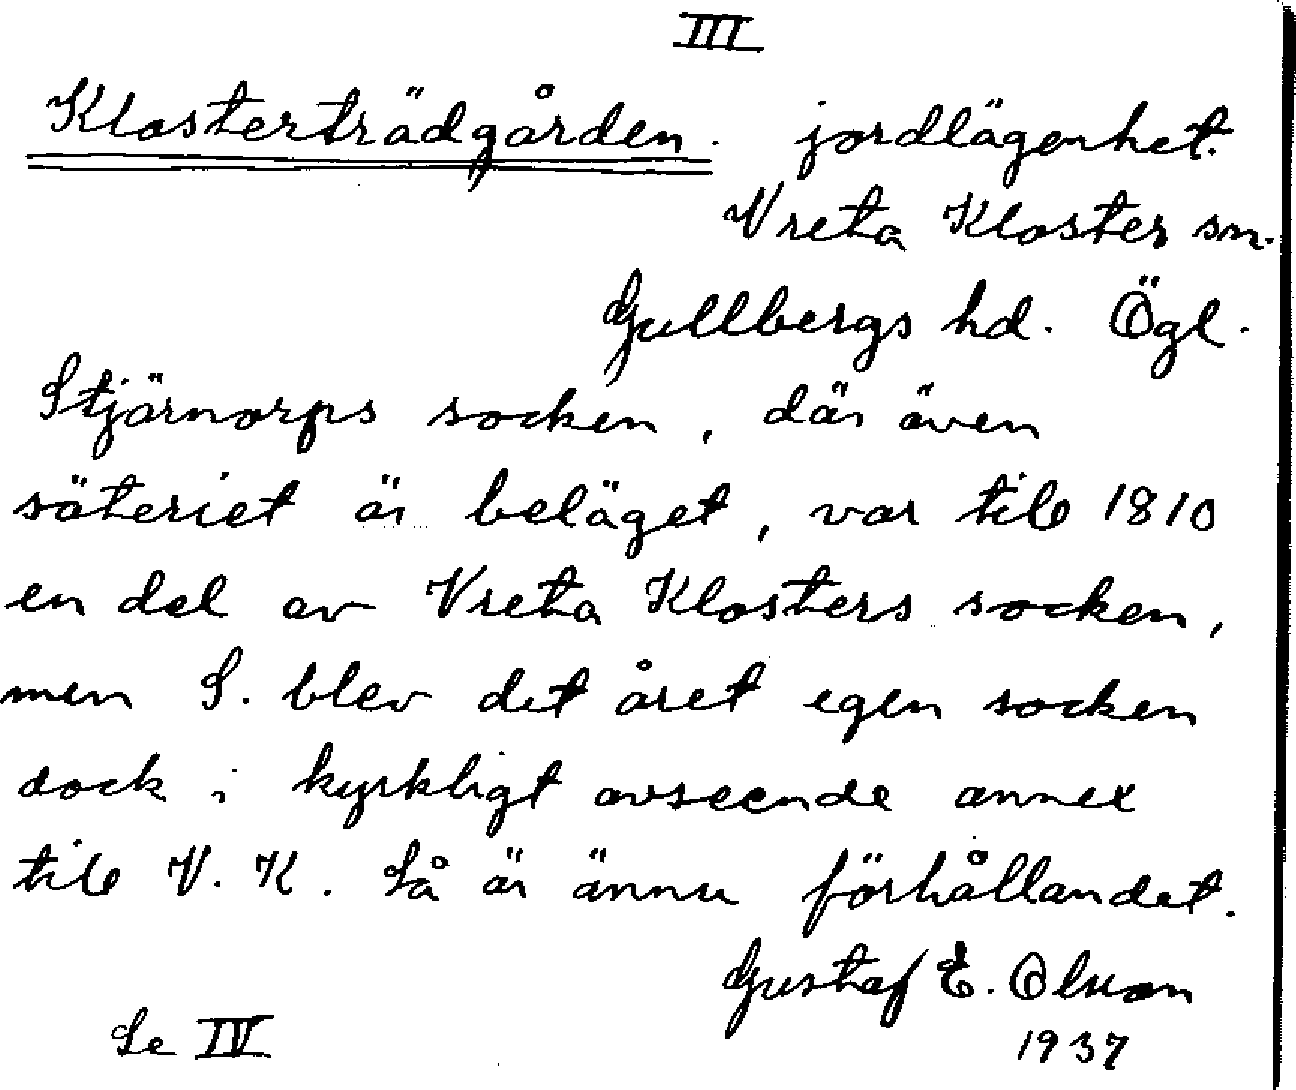 III
Klosterträdgården. jordlägenhet.
Vreta Kloster sn.
Gullbergs hd. Ögl.
Stjärnorps socken, där även
säteriet är beläget, var till 1810
en del av Vreta Klosters socken,
men S. blev det året egen socken
dock i kyrkligt avseende annex
till V. K. Så är ännu förhållandet.
Gustaf E. Olsson
Se IV 1937